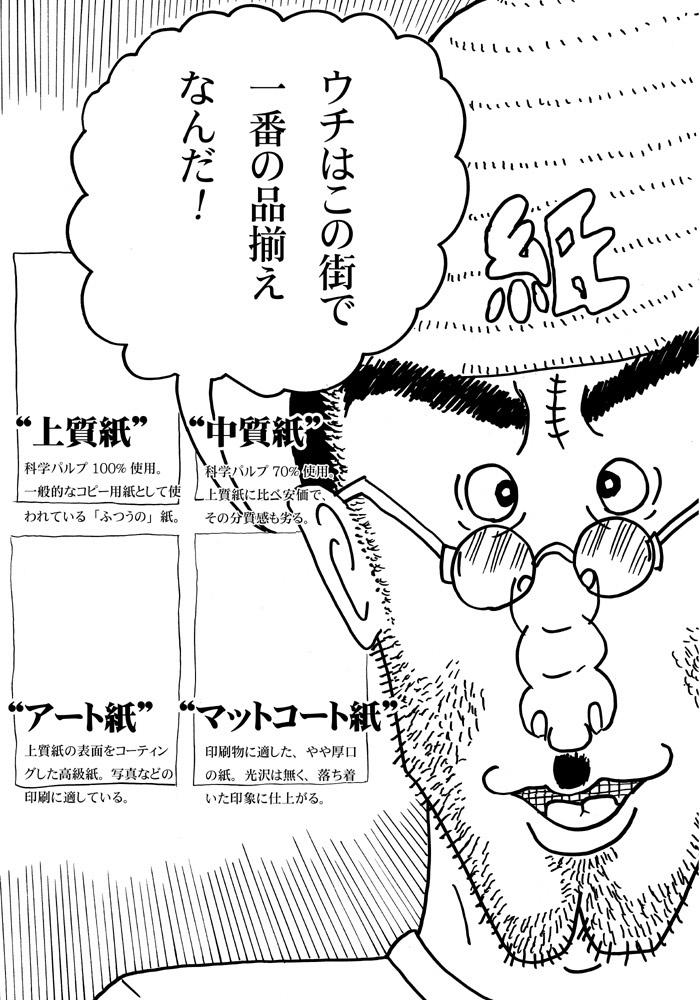 ウチはこの街で
一番の品揃え
なんだ！
紙
“上質紙”
科学パルプ 100% 使用。
一般的なコピー用紙として使
われている「ふつうの」紙。
“中質紙”
科学パルプ 70% 使用。
上質紙に比べ安価で、
その分質感も劣る。
“アート紙”
上質紙の表面をコーティン
グした高級紙。写真などの
印刷に適している。
“マットコート紙”
印刷物に適した、やや厚口
の紙。光沢は無く、落ち着
いた印象に仕上がる。